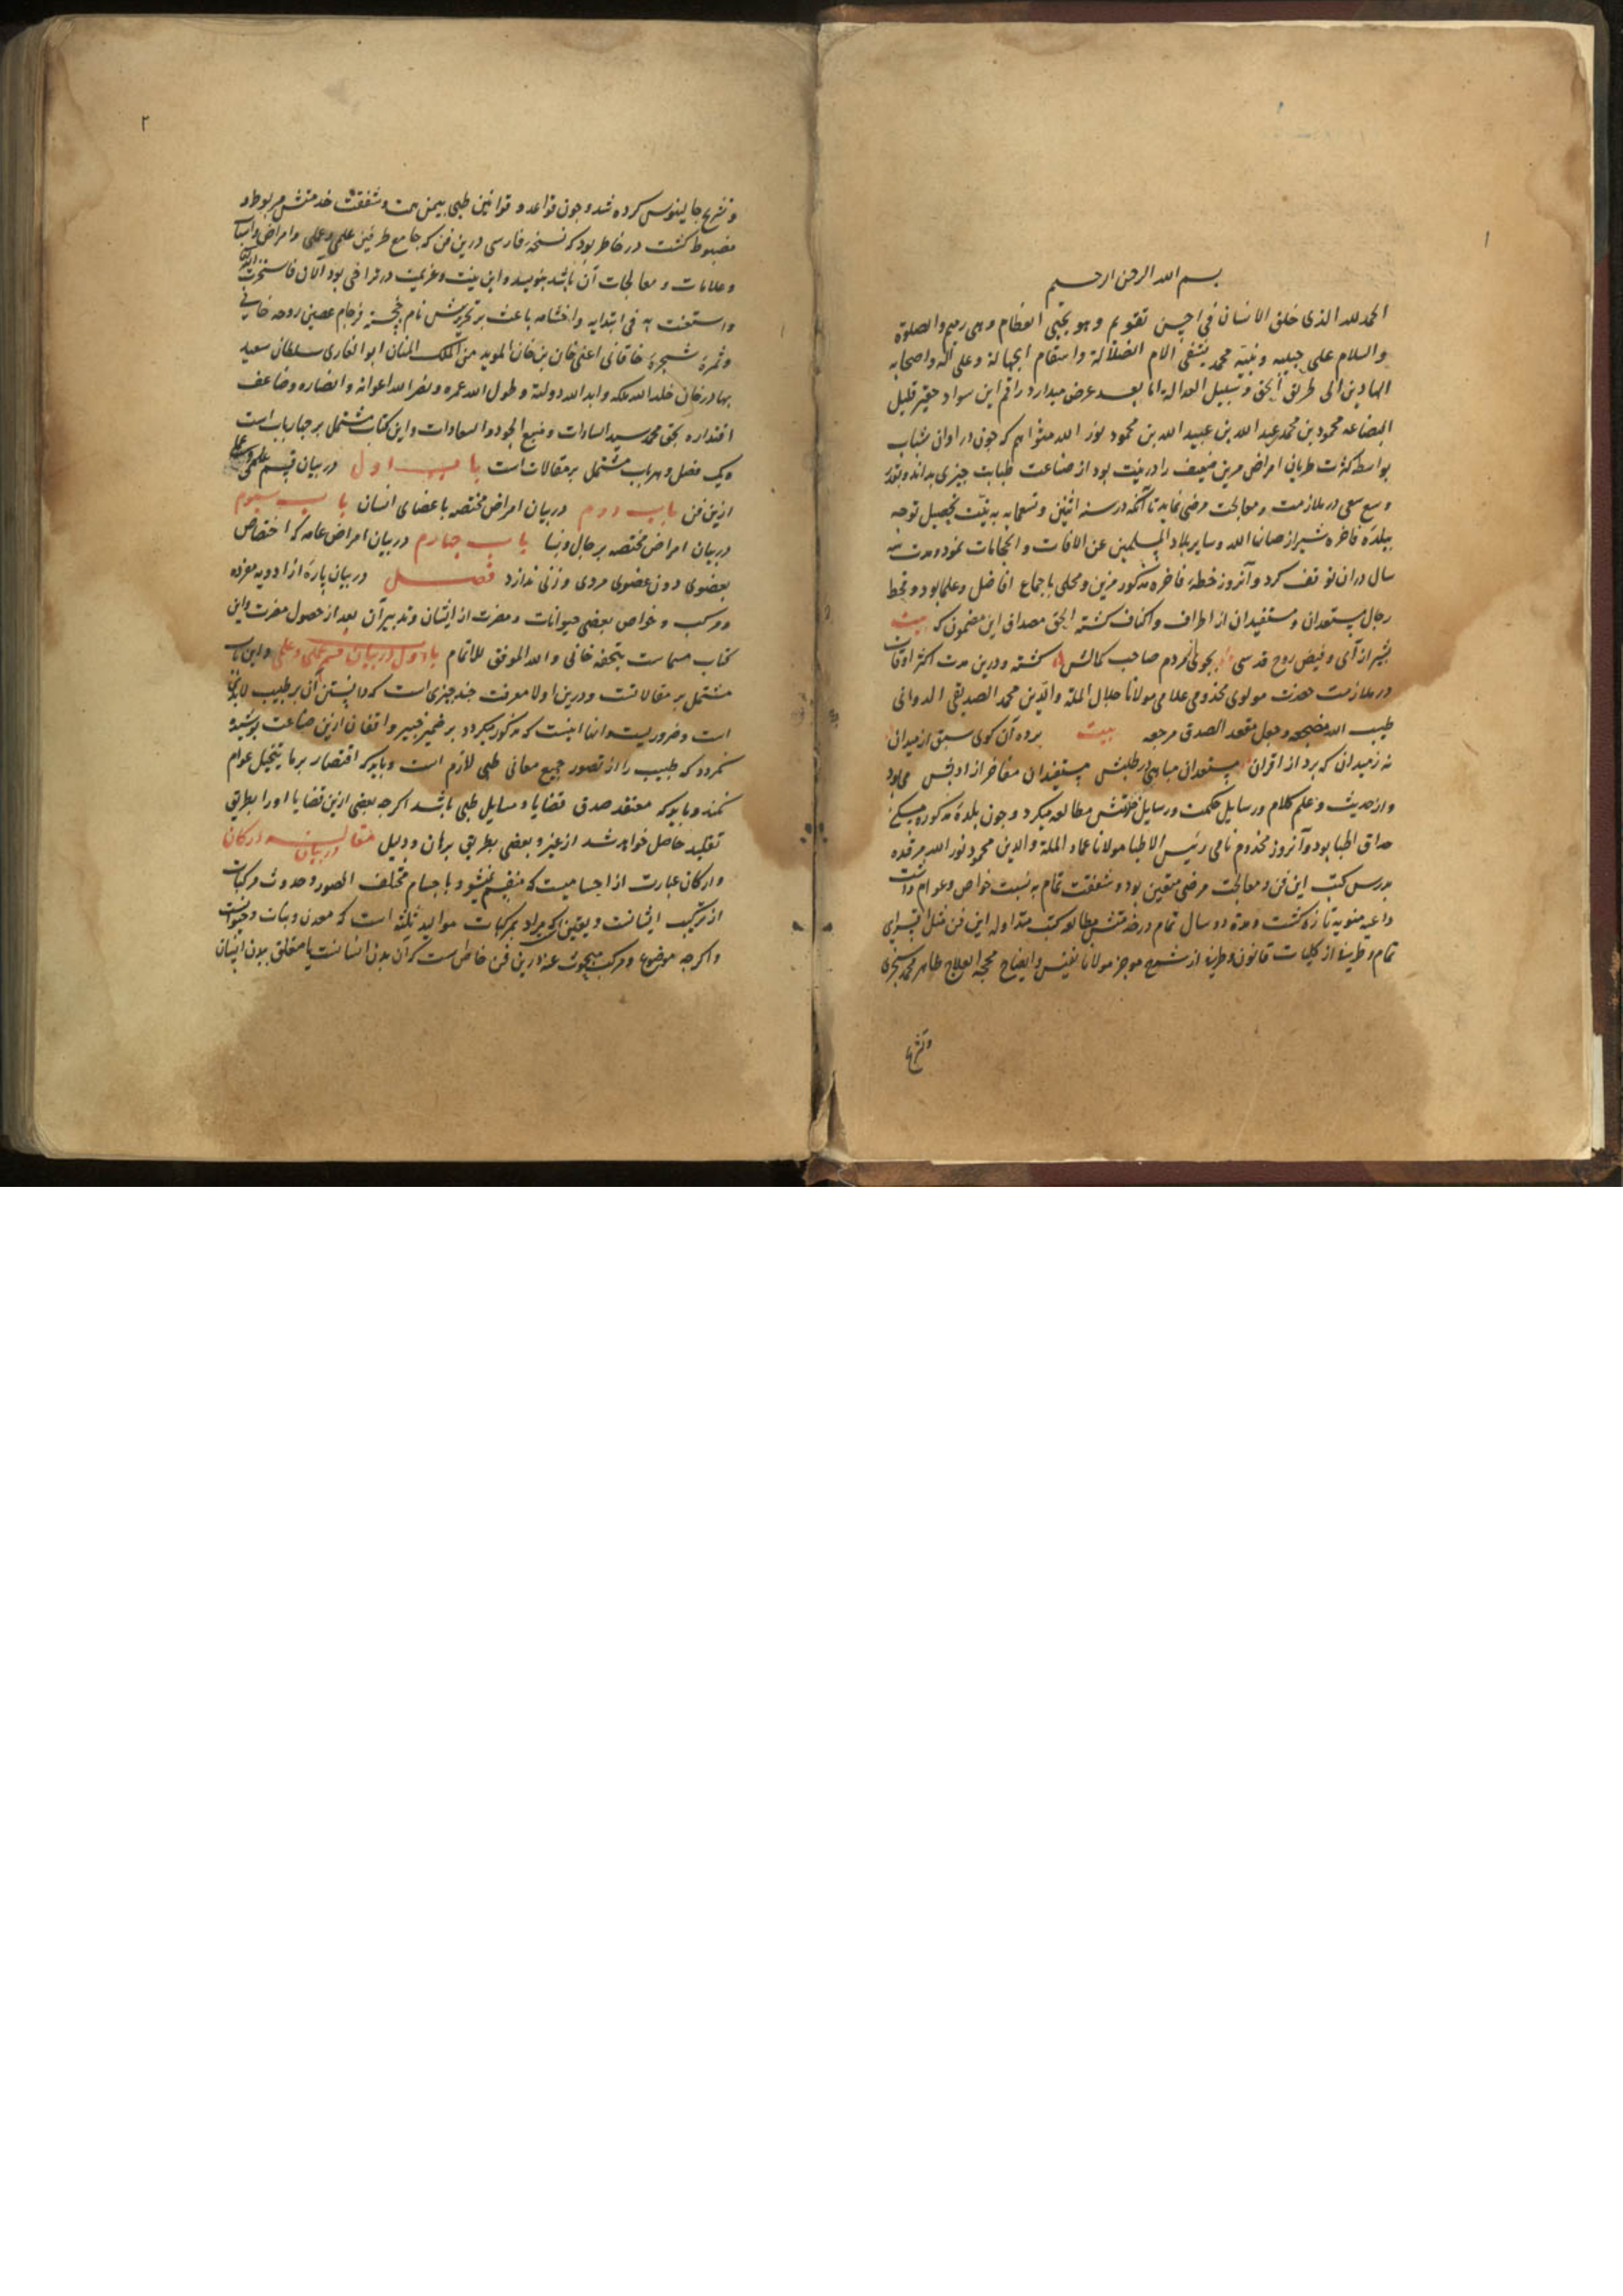 ۱
بسم الله الرحمن الرحیم
الحمد لله الذی خلق الانسان فی احسن تقویم وهو یحیی العظام وهی رمیم والصلوة
والسلام علی حبیبه ونبیه محمد یشفی الام الضلالة واسقام الجهالة وعلی آله واصحابه
الهادین الی طریق الحق وسبیل العداله اما بعد عرض میدارد راقم این سواد حقیر قلیل
البضاعه محمود بن محمد عبد الله بن عبید الله بن محمود نور الله مثواهم که چون در اوان شباب
بواسطه کثرت طریان امراض مرین ضعیف را در نیت بود از صناعت طبابت چیزی بداند وبقدر
وسع سعی در ملازمت ومعالجت مرضی نماید تا آنکه در سنه اثنین وتسعمایه به نیت تحصیل توجه
ببلده فاخره شیراز صان الله وسایر بلاد المسلمین عن الافات والنجابات نمود ومدت سه
سال دران توقف کرد وآنروز خطه فاخره مذکور مزین ومحلی باجماع افاضل وعلما بود ومحط
رجال مستعدان ومستفیدان از اطراف واکناف کشته الحق مصداق این مضمون که بیت
بشیراز آی وفیض روح قدسی بجوی از مردم صاحب کمالش کشته ودرین مدت اکثر اوقات
در ملازمت حضرت مولوی مخدومی علامی مولانا جلال الملة والدین محمد الصدیقی الدوانی
طیب الله مضجعه وجعل مقعد الصدق مرجعه بیت برده آن کوی سبق از میدان
نه زمیدان که برد از اقران مستعدان مباهی از طلبش مستفیدان مفاخر از ادبش می بود
واز حدیث وعلم کلام ورسایل حکمت ورسایل خدمتش مطالعه میکرد وچون بلده مذکوره مسکن
حذاق اطبا بود وآنروز مخدوم نامی رئیس الاطبا مولانا عماد الملة والدین محمود نور الله مرقده
بدرس کتب این فن ومعالجت مرضی متعین بود وشفقت تمام به نسبت خواص وعوام داشت
داعیه منویه تازه کشت ومدة دو سال تمام در خدمتش مطالعه کتب متداوله این فن مثل اقسرای
تمام وطرفی از کلیات قانون وطرفی از شرح موجز مولانا نفیس وایضاح محجة العلاج طاهر محمد سجزی
وتشریح
۲
وتشریح جالینوس کرده شد وچون قواعد وقوانین طبی بیمن همت وشفقت خدمتش مربوط و
مضبوط کشت در خاطر بود که نسخه فارسی درین فن که جامع طرفین علمی وعملی وامراض واسباب
وعلامات ومعالجات آن باشد بنویسد واین نیت وعزیمت در تراخی بود الان فاستخرت الله
واستعنت به فی ابتدایه واختتامه باعث بر تحریرش نام خجسته فرجام غصن دوحه خانی
وثمره شجره خاقانی اعنی خان بن خان الموید من الملک المنان ابو الغازی سلطان سعید
بهادر خان خلد الله ملکه وابد الله دولته وطول الله عمره ونصر الله اعوانه وانصاره وضاعف
اقتداره بحق محمد سید السادات ومنبع الجود والسعادات واین کتاب مشتمل بر چهار باب است
ویک فصل وهر باب مشتمل بر مقالات است باب اول در بیان قسم علمی وعملی
ازین فن باب دوم در بیان امراض مختصه باعضای انسان باب سیوم
در بیان امراض مختصه برجال ونسا باب چهارم در بیان امراض عامه که اختصاص
بعضوی دون عضوی مردی وزنی ندارد فصل در بیان پاره از ادویه مفرده
ومرکب وخواص بعضی حیوانات ومضرت از ایشان وتدبیر آن بعد از حصول مضرت واین
کتاب مسماست بتحفه خانی والله الموفق للاتمام باب اول در بیان قسم علمی وعملی واین باب
مشتمل بر مقالاتست ودرین اولا معرفت چند چیزی است که دانستن آن بر طبیب لابدی
است وضروریست وانها اینست که مذکور میکردد بر ضمیر خبیر واقفان ازین صناعت پوشیده
نکردد که طبیب را از تصور جمیع معانی طبی لازم است وباید که اقتصار بر ما یتخیل عوام
نکند وباید که معتقد صدق قضایا ومسایل طبی باشد اکرچه بعضی ازین قضایا او را بطریق
تقلید حاصل خواهد شد از غیر وبعضی بطریق برهان ودلیل مقاله در بیان ارکان
وارکان عبارت از اجسامیست که منقسم نمیشود باجسام مختلف الصور وحدوث مرکبات
از ترکیب ایشانست ویقین که مراد بمرکبات موالید ثلثه است که معدن ونبات وحیوانست
واکرچه موضوع ومرکب مبحوث عنه درین فن خاص است که آن بدن انسانست یا متعلق ببدن انسان